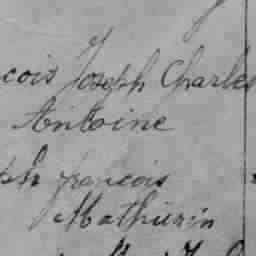 cois Joseph Charles
Antoine
ph françois
Mathurin